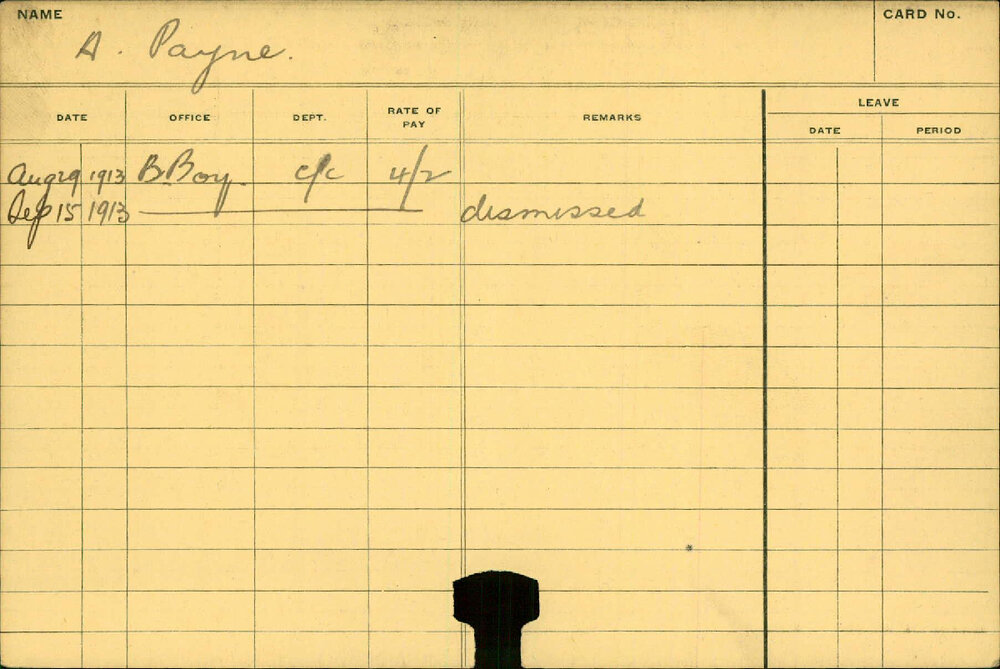 NAME
CARD No.
A. Payne.
DATE OFFICE DEPT. RATE OF PAY REMARKS LEAVE
DATE PERIOD
Aug 29 1913 B. Boy. c/c 4/2
Sep 15 1913 dismissed